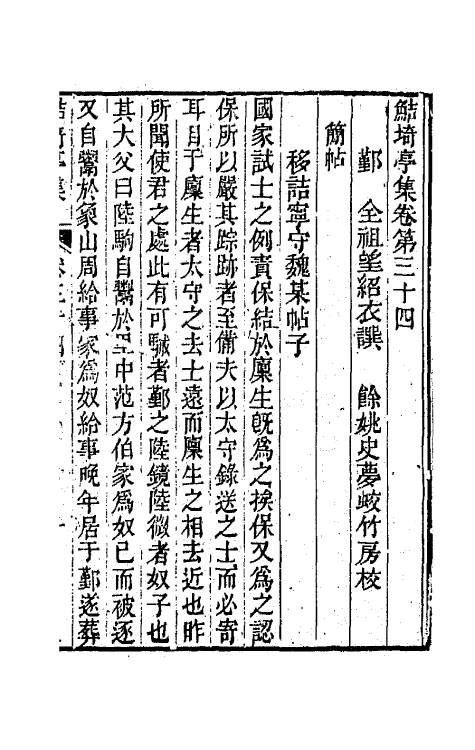 鮚埼亭集卷第三十四
鄞　全祖望紹衣譔　餘姚史夢蛟竹房校
簡帖
移詰寧守魏某帖子
國家試士之例責保結於廩生旣爲之挨保又爲之認
保所以嚴其踪跡者至備夫以太守錄送之士而必寄
耳目于廩生者太守之去士遠而廩生之相去近也昨
所聞使君之處此有可駴者鄞之陸鏡陸微者奴子也
其大父曰陸駒自鬻於里中范方伯家爲奴已而被逐
又自鬻於象山周給事家爲奴給事晚年居于鄞遂葬